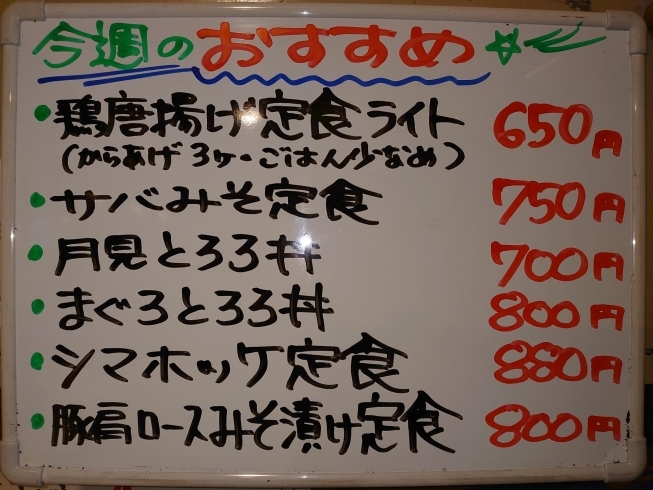 今週のおすすめ
・鶏唐揚げ定食ライト 650円
(からあげ3ヶ・ごはん少なめ)
・サバみそ定食 750円
・月見とろろ丼 700円
・まぐろとろろ丼 800円
・シマホッケ定食 880円
・豚肩ロースみそ漬け定食 800円